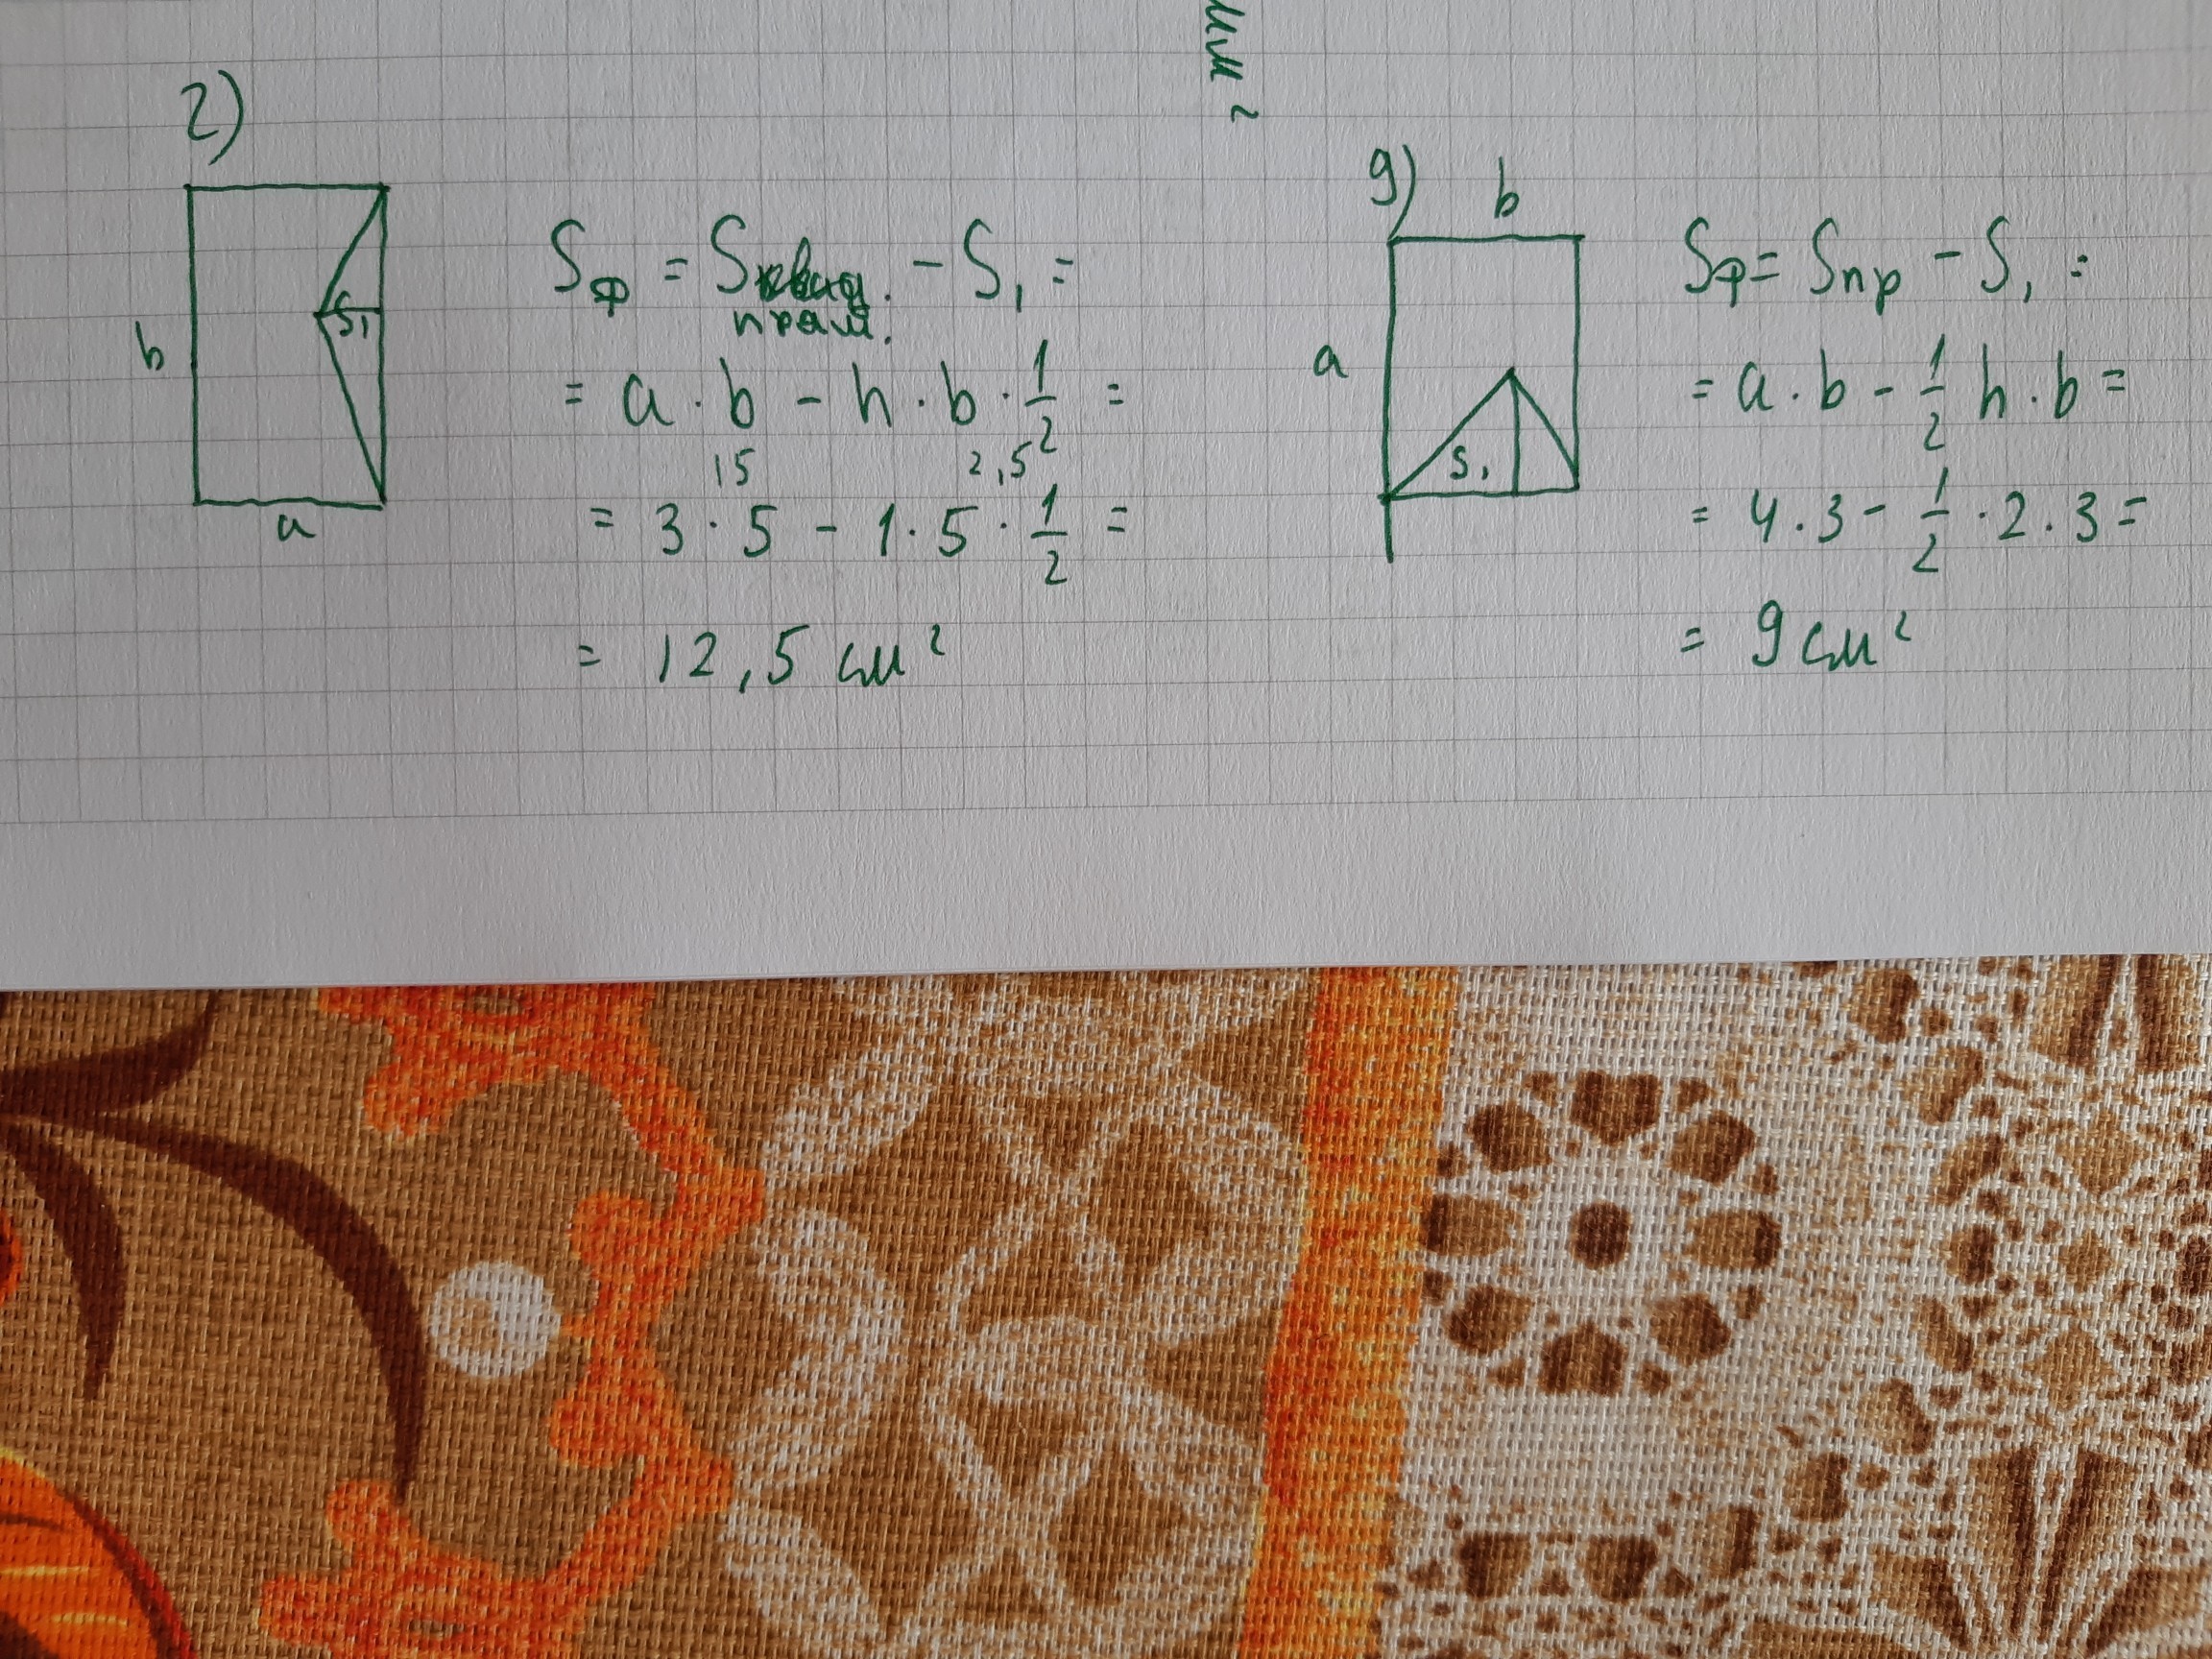 мм²
2)
b
S₁
a
Sф = Sквад. - S₁ =
прям.
= a · b - h · b · 1/2 =
15 2,5
= 3 · 5 - 1 · 5 · 1/2 =
= 12,5 см²
g)
b
a
S₁
Sф = Sпр - S₁ =
= a · b - 1/2 h · b =
= 4 · 3 - 1/2 · 2 · 3 =
= 9 см²